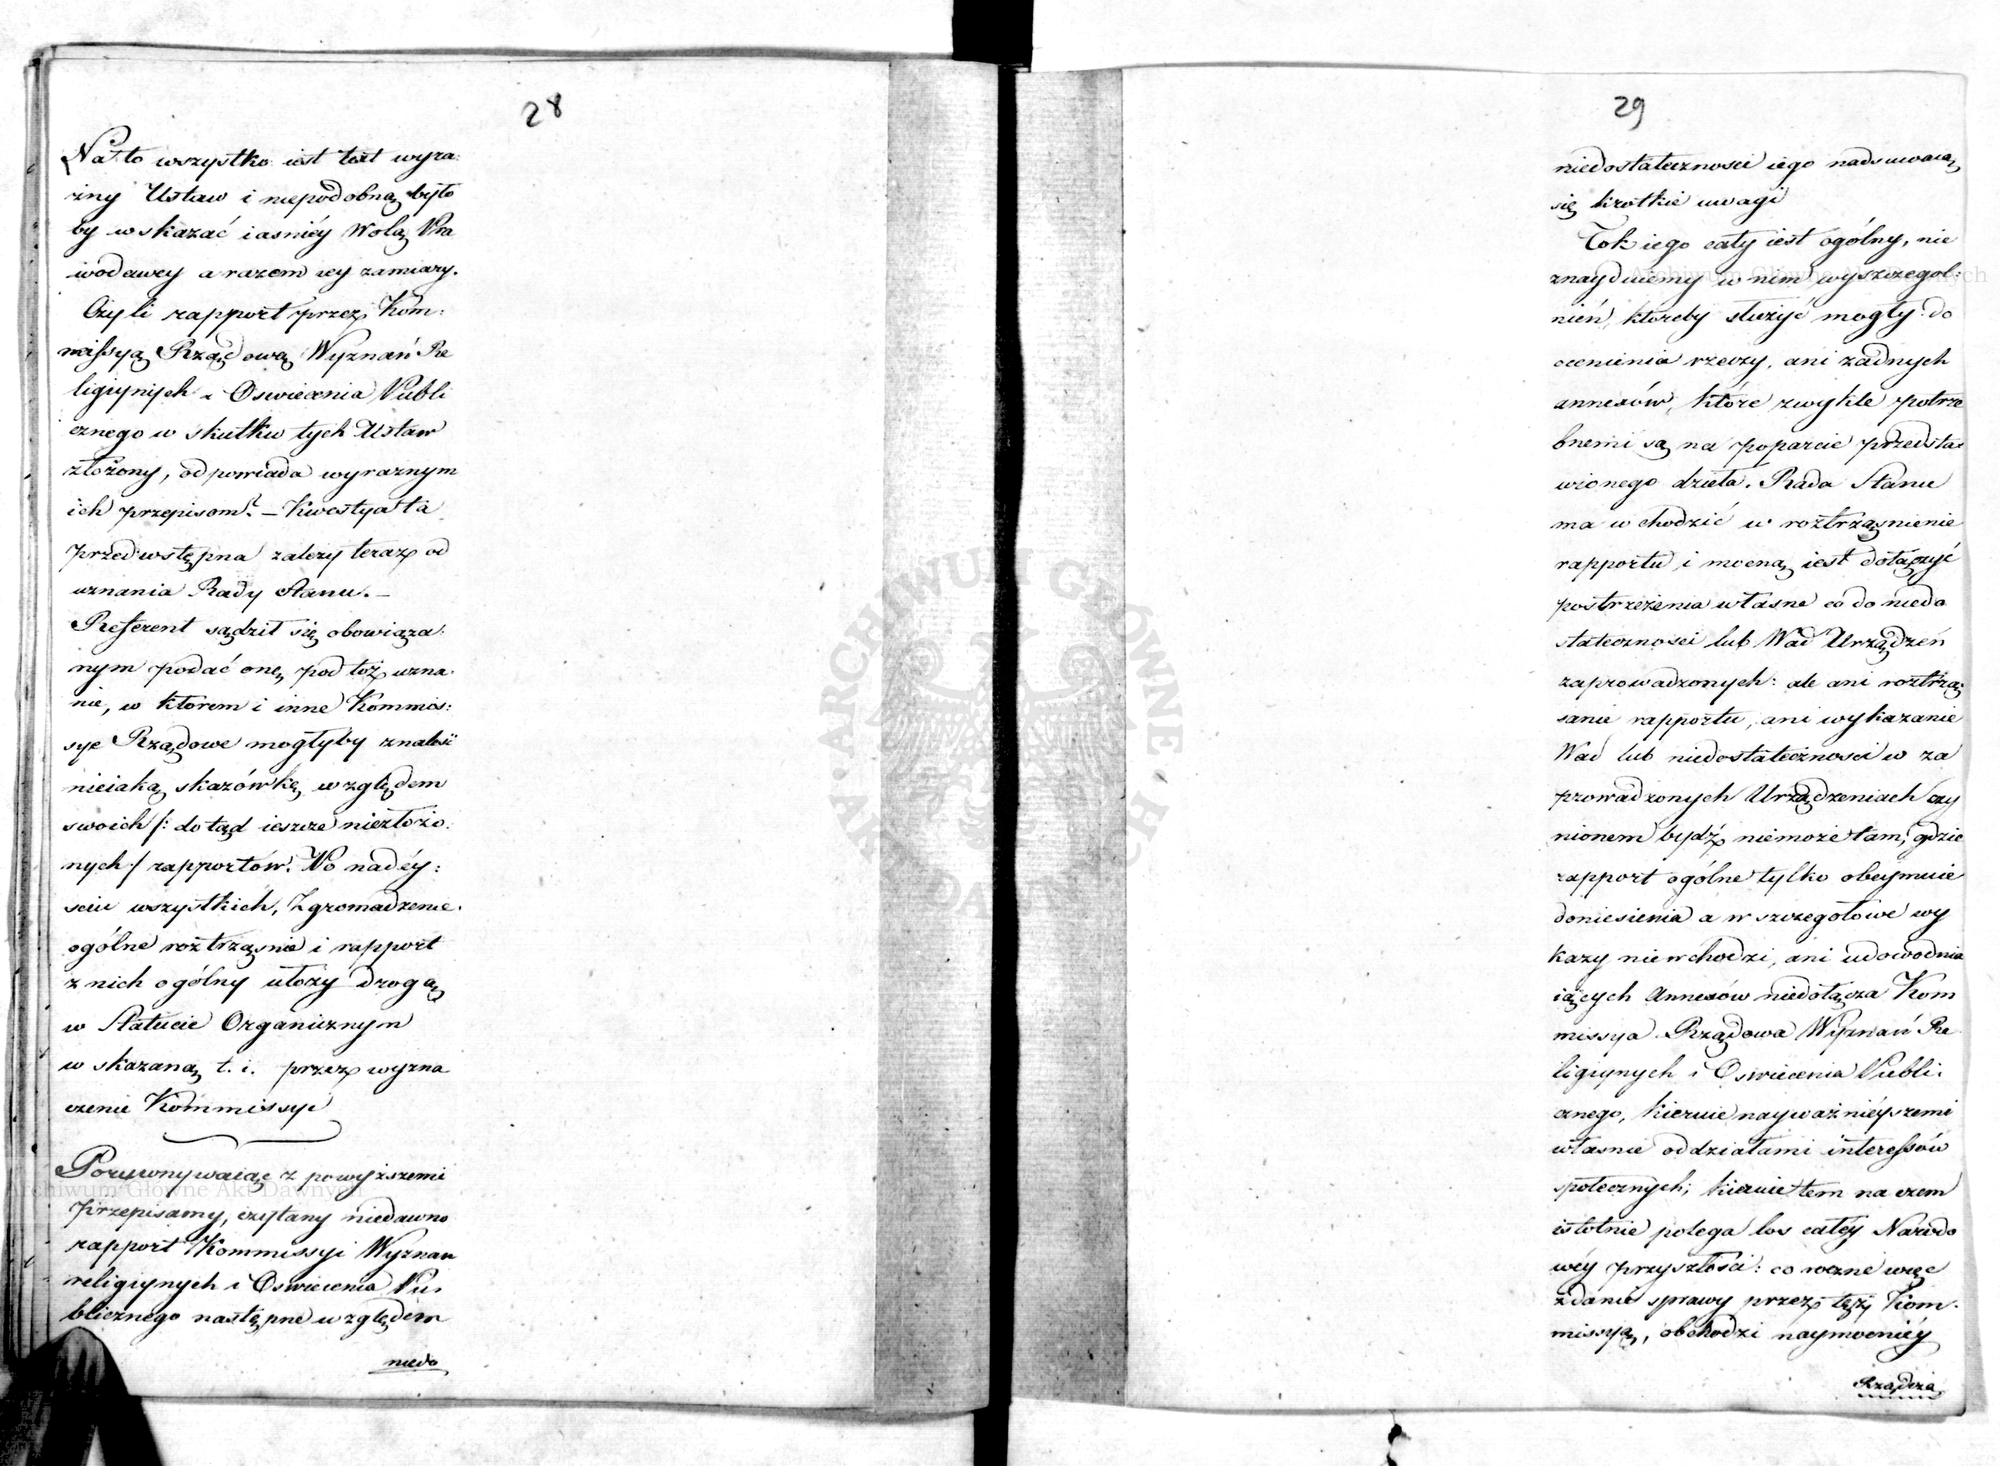 28
Na to wszystko iest text wyra:
źny Ustaw i niepodobną było
by wskazać iasniéy Wolą Pra
wodawcy a razem iey zamiary.
Czyli rapport przez Kom:
missyą Rządową Wyznań Re
ligiynych i Oswiecenia Publi
cznego w skutku tych Ustaw
złożony, odpowiada wyraznym
ich przepisom? – Kwestya ta
przedwstępna zależy teraz od
uznania Rady Stanu. –
Referent sądził się obowiąza:
nym podać onę, pod toż uzna:
nie, w ktorem i inne Kommis:
sye Rządowe mogłyby znaleść
nieiaką skazówkę, względem
swoich /: dotąd ieszcze niezłożo:
nych / rapportów. Po nadéy:
sciu wszystkich, Zgromadzenie
ogólne roztrząsnie i rapport
z nich ogólny ułoży drogą
w Statucie Organicznym
wskazaną t. i. przez wyzna
czenie Kommissyi
Porównywaiąc z powyższemi
przepisamy, czytany niedawno
rapport Kommissyi Wyznan
religiynych i Oswiecenia Pu:
blicznego następne względem
niedo
29
niedostateczności iego nadsuwaią
się krotkie uwagi
Tok iego cały iest ogólny, nie
znayduiemy w nim wyszczegol:
nień, ktoreby służyć mogły do
ocenienia rzeczy, ani żadnych
annexów, które zwykle potrze
bnemi są na poparcie przedsta
wionego dzieła. Rada Stanu
ma wchodzić w roztrząsnienie
rapportu i mocną iest dołączyć
postrzeżenia własne co do niedo
stateczności lub Wad Urządzeń
zaprowadzonych: ale ani roztrzą
sanie rapportu, ani wykazanie
Wad lub niedostateczności w za
prowadzonych Urządzeniach czy
nionem bydź niemoże tam, gdzie
rapport ogólne tylko obeymuie
doniesienia a w szczegółowe wy
kazy niewchodzi, ani udowodnia
iących Annexów niedołącza Kom
missya Rządowa Wyznań Re
ligiynych i Oswiecenia Publi:
cznego, kieruie nayważniéyszemi
własnie oddziałami interessów
społecznych; kieruie tem na czem
istotnie polega los całéy Narodo
wéy przyszłości: coroczne więc
zdanie sprawy przez tęż Kom:
missyą, obchodzi naymocniéy
Rządcza
Archiwum Główne Akt Dawnych
Archiwum Główne Akt Dawnych
ARCHIWUM GŁÓWNE AKT DAWNYCH